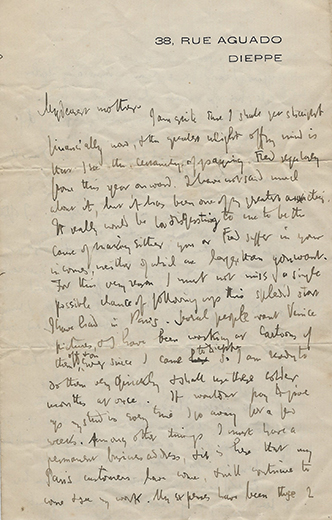 38, RUE AGUADO
DIEPPE
My dearest mother I am quite sure I shall get straight
financially now, & the greatest weight off my mind is
that I see the certainty of repaying Fred regularly
from this year onward. I have not said much
about it, but it has been one of my greatest anxieties.
It really would be to me to be the
cause of making either you or Fred suffer in your
incomes, neither of which are larger than you want.
For this very reason I must not miss a single
possible chance of following up this splendid start
I have had in Paris. Several people want Venice
pictures, & I have been working at cartoons of
them ever since I came to Dieppe So I am ready to
do them very quickly & shall use these colder
months at once. It wouldn't pay to give
up my studio every time I go away for a few
weeks. Among other things I must have a
permanent business address, & it is here that my
Paris customers have come, & will continue to
come & see my work. My expenses have been these 2